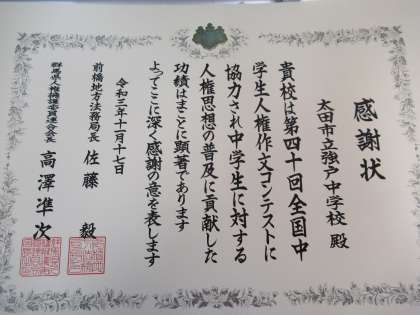 感謝状
太田市立強戸中学校 殿
貴校は第四十回全国中
学生人権作文コンテストに
協力され中学生に対する
人権思想の普及に貢献した
功績はまことに顕著であります
よってここに深く感謝の意を表します
令和三年十一月十七日
前橋地方法務局長 佐藤 毅
群馬県人権擁護委員連合会長 高澤準次